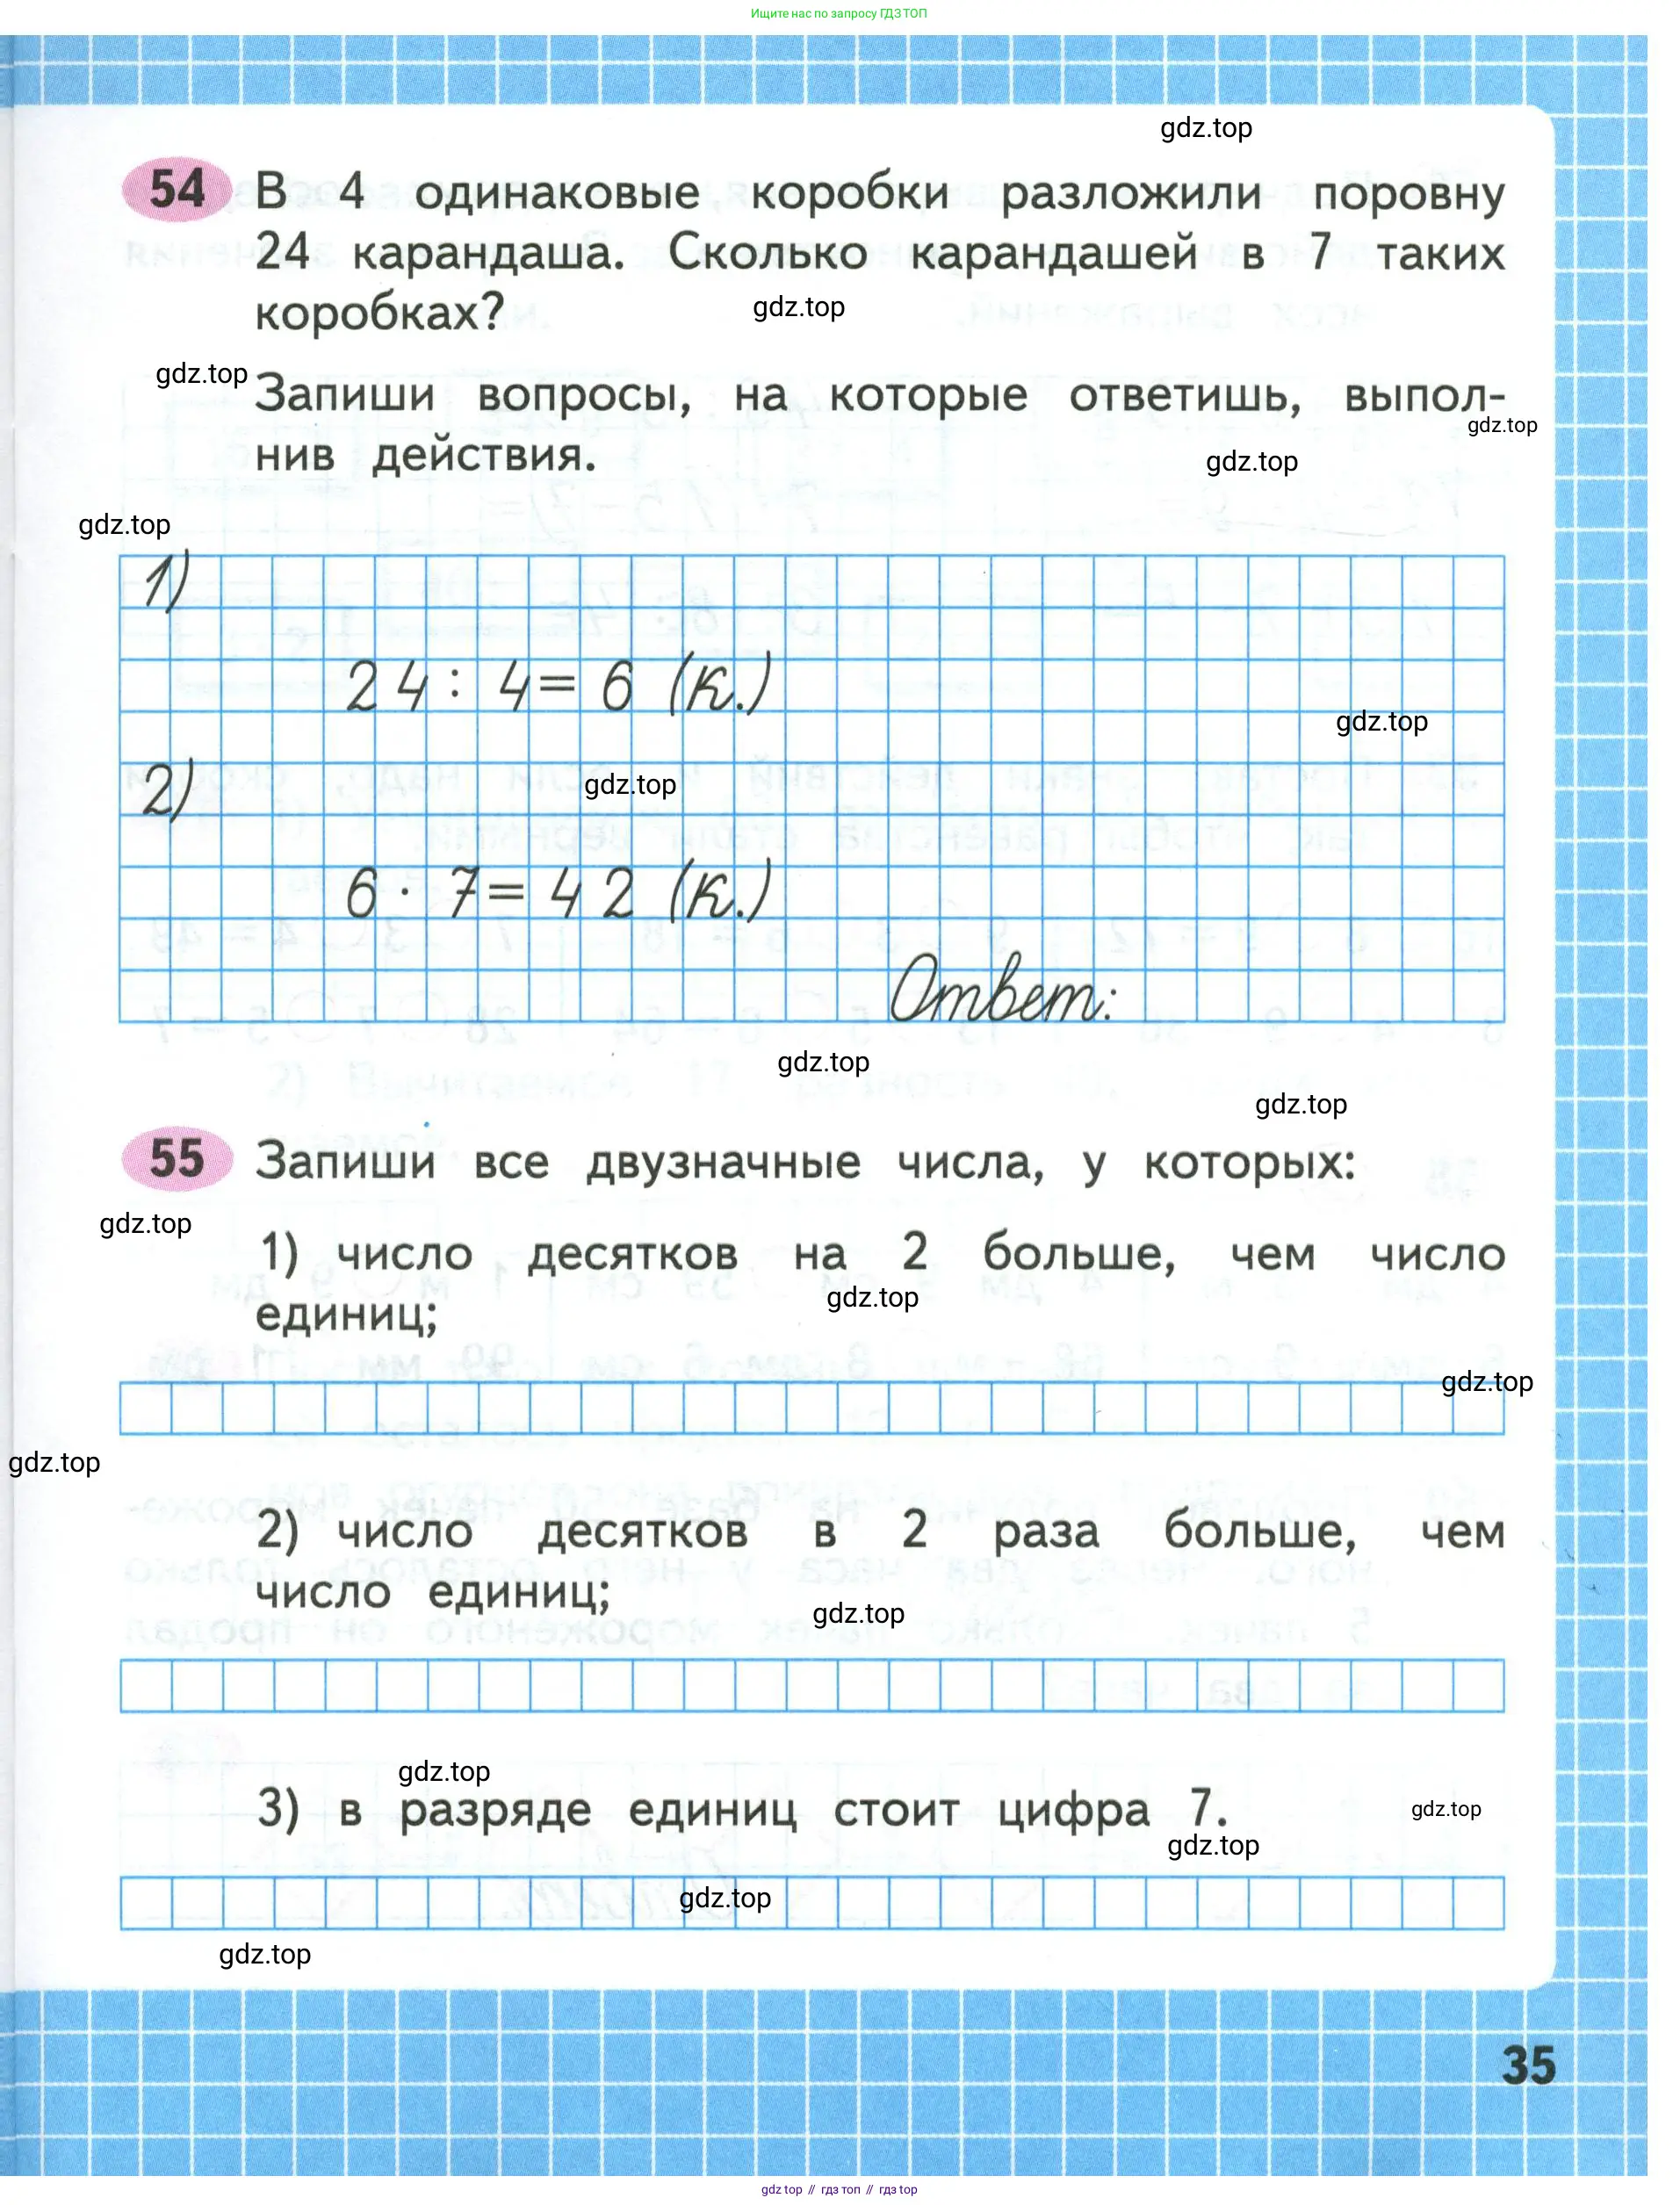 Ищите нас по запросу ГДЗ ТОП
gdz.top
54 В 4 одинаковые коробки разложили поровну
24 карандаша. Сколько карандашей в 7 таких
коробках?
gdz.top
gdz.top
Запиши вопросы, на которые ответишь, выпол-
gdz.top
нив действия.
gdz.top
gdz.top
1)
24 : 4 = 6 (к.)
gdz.top
2)
gdz.top
6 · 7 = 42 (к.)
Ответ:
gdz.top
gdz.top
55 Запиши все двузначные числа, у которых:
gdz.top
1) число десятков на 2 больше, чем число
единиц;
gdz.top
gdz.top
gdz.top
2) число десятков в 2 раза больше, чем
число единиц;
gdz.top
gdz.top
3) в разряде единиц стоит цифра 7.
gdz.top
gdz.top
gdz.top
gdz.top
35
gdz top // гдз топ // гдз top